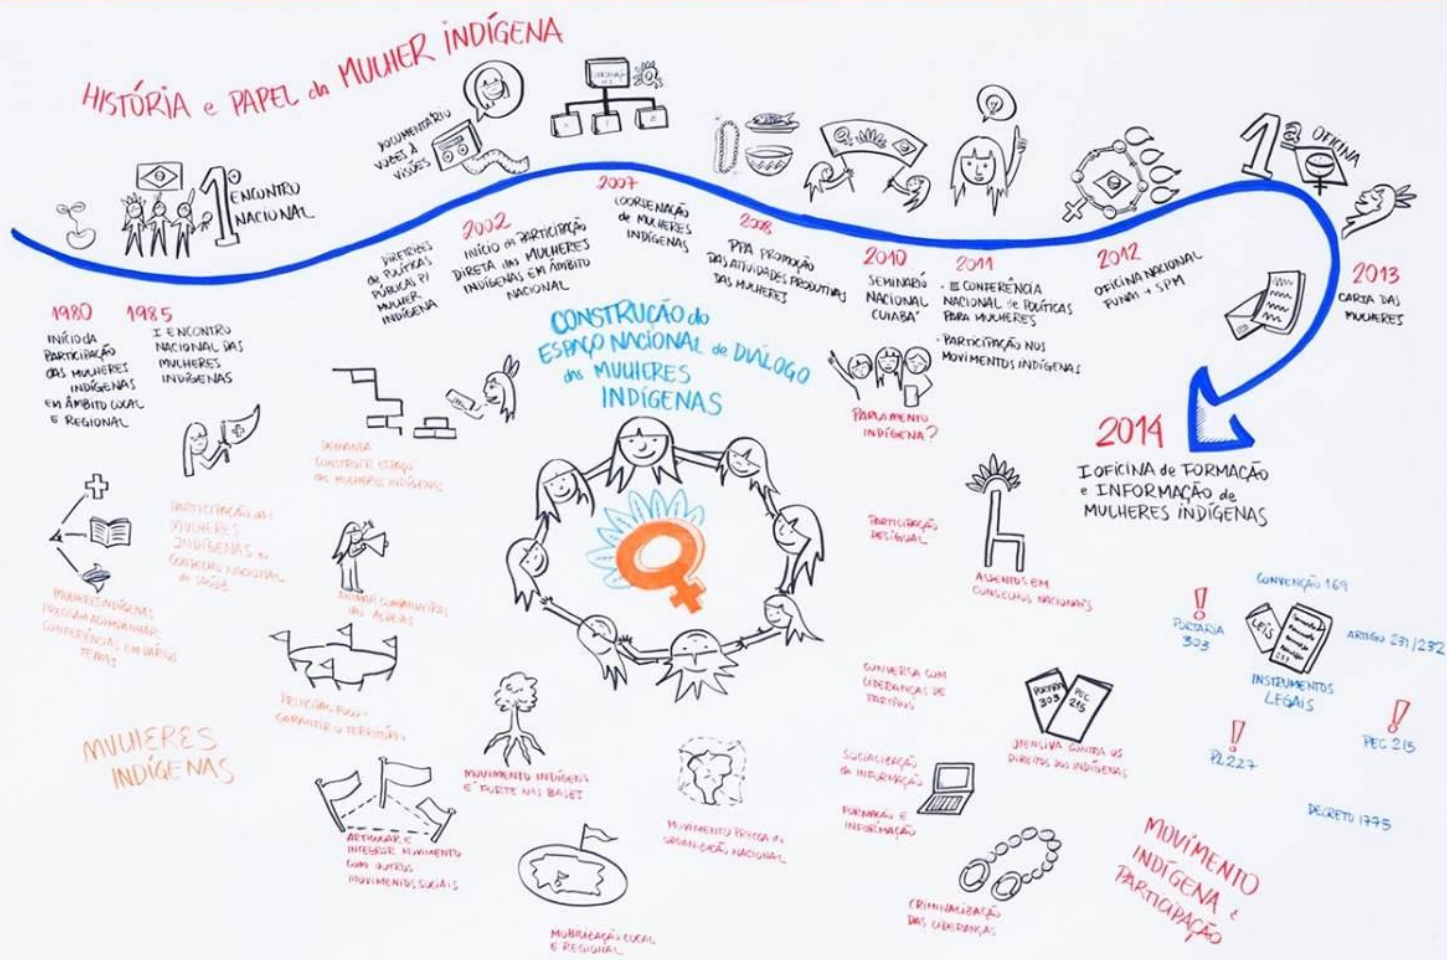 HISTÓRIA e PAPEL da MULHER INDÍGENA
1º ENCONTRO
NACIONAL
DOCUMENTÁRIO
VOZES &
VISÕES
COORDENAÇÃO
1ª OFICINA
1980
INÍCIO DA
PARTICIPAÇÃO
DAS MULHERES
INDÍGENAS
EM ÂMBITO LOCAL
E REGIONAL
1985
I ENCONTRO
NACIONAL DAS
MULHERES
INDÍGENAS
DIRETRIZES
de POLÍTICAS
PÚBLICAS P/
MULHER
INDÍGENA
2002
INÍCIO da PARTICIPAÇÃO
DIRETA das MULHERES
INDÍGENAS EM ÂMBITO
NACIONAL
2007
COORDENAÇÃO
de MULHERES
INDÍGENAS
2008
PPA PROMOÇÃO
DAS ATIVIDADES PRODUTIVAS
DAS MULHERES
2010
SEMINÁRIO
NACIONAL
CUIABÁ
2011
• III CONFERÊNCIA
NACIONAL de POLÍTICAS
PARA MULHERES
• PARTICIPAÇÃO NOS
MOVIMENTOS INDÍGENAS
2012
OFICINA NACIONAL
FUNAI + SPM
2013
CARTA DAS
MULHERES
2014
I OFICINA de FORMAÇÃO
e INFORMAÇÃO de
MULHERES INDÍGENAS
CONSTRUÇÃO do
ESPAÇO NACIONAL de DIÁLOGO
das MULHERES
INDÍGENAS
MULHERES INDÍGENAS
PRECISAM ACOMPANHAR
CONFERÊNCIAS EM VÁRIOS
TEMAS
PARTICIPAÇÃO das
MULHERES
INDÍGENAS no
CONSELHO NACIONAL
de SAÚDE
DEMANDA
CONSTRUIR ESPAÇO
das MULHERES INDÍGENAS
ANIMAR COMPANHEIRAS
das ALDEIAS
PRINCIPAL FOCO =
GARANTIR o TERRITÓRIO
MULHERES
INDÍGENAS
ARTICULAR E
INTEGRAR MOVIMENTO
COM OUTROS
MOVIMENTOS SOCIAIS
MOVIMENTO INDÍGENA
É FORTE NAS BASES
MOBILIZAÇÃO LOCAL
E REGIONAL
MOVIMENTO PRECISA de
ORGANIZAÇÃO NACIONAL
PARLAMENTO
INDÍGENA?
PARTICIPAÇÃO
DESIGUAL
ASSENTOS EM
CONSELHOS NACIONAIS
CONVERSA COM
LIDERANÇAS DE
PARTIDOS
PORTARIA
303
PEC
215
OFENSIVA CONTRA OS
DIREITOS DOS INDÍGENAS
SOCIALIZAÇÃO
da INFORMAÇÃO
FORMAÇÃO E
INFORMAÇÃO
CRIMINALIZAÇÃO
DAS LIDERANÇAS
CONVENÇÃO 169
!
PORTARIA
303
LEIS
ARTIGO 231/232
INSTRUMENTOS
LEGAIS
!
PL 227
!
PEC 215
DECRETO 1775
MOVIMENTO
INDÍGENA e
PARTICIPAÇÃO